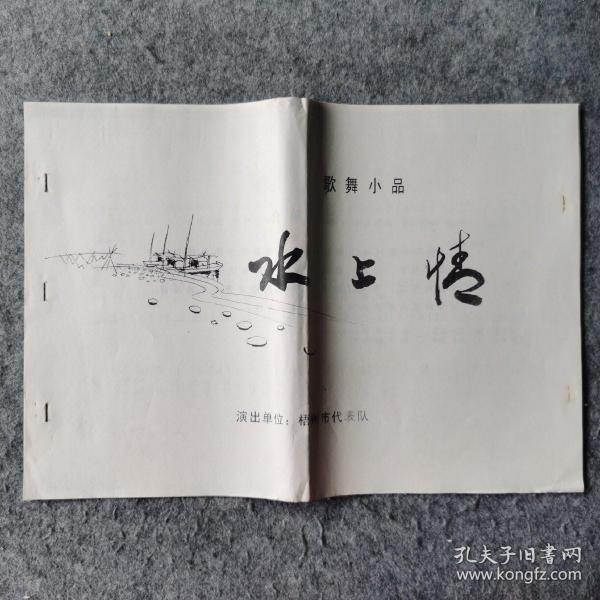 歌舞小品
水上情
演出单位：梧州市代表队
孔夫子旧書网
www.kongfz.com